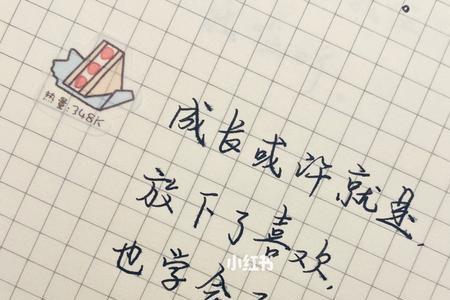 。
热量:348K
成长或许就是,
放下了喜欢,
也学会了
小红书